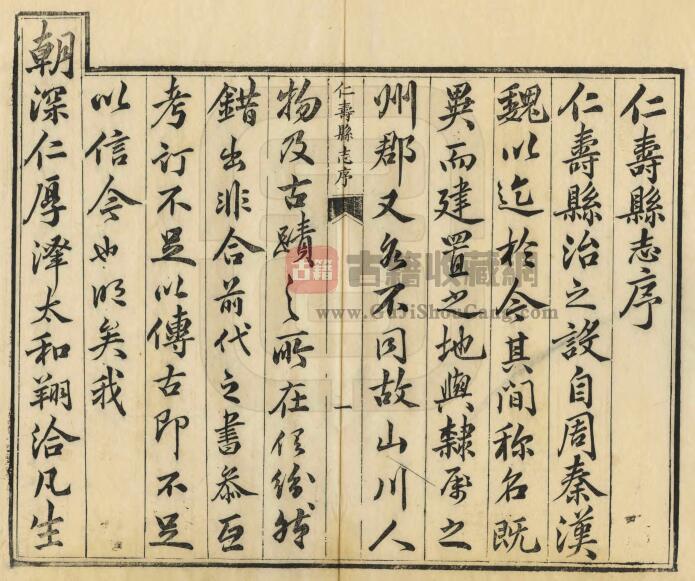 仁壽縣志序
仁壽縣治之設自周秦漢
魏以迄於今其間稱名既
異而建置之地與隸屬之
州郡又各不同故山川人
仁壽縣志序
一
物及古蹟之所在紛然
錯出非合前代之書參互
考訂不足以傳古即不足
以信今也明矣我
朝深仁厚澤太和翔洽凡生
古籍
古籍收藏網
www.GuJiShouCang.com